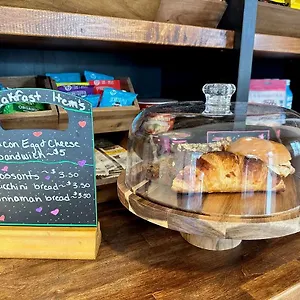 akfast Item's
acon Egg Cheese
andwich ~ $5
oosants ~ $3.50
ucchini bread ~ $3.50
innaman bread ~ $3.50